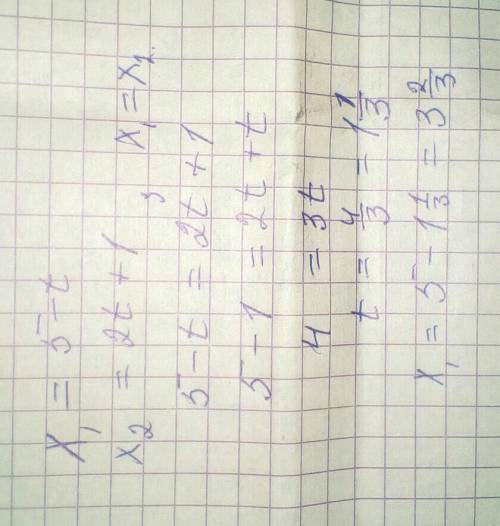 x₁ = 5 - t
x₂ = 2t + 1 , x₁ = x₂
5 - t = 2t + 1
5 - 1 = 2t + t
4 = 3t
t = 4/3 = 1 1/3
x₁ = 5 - 1 1/3 = 3 2/3